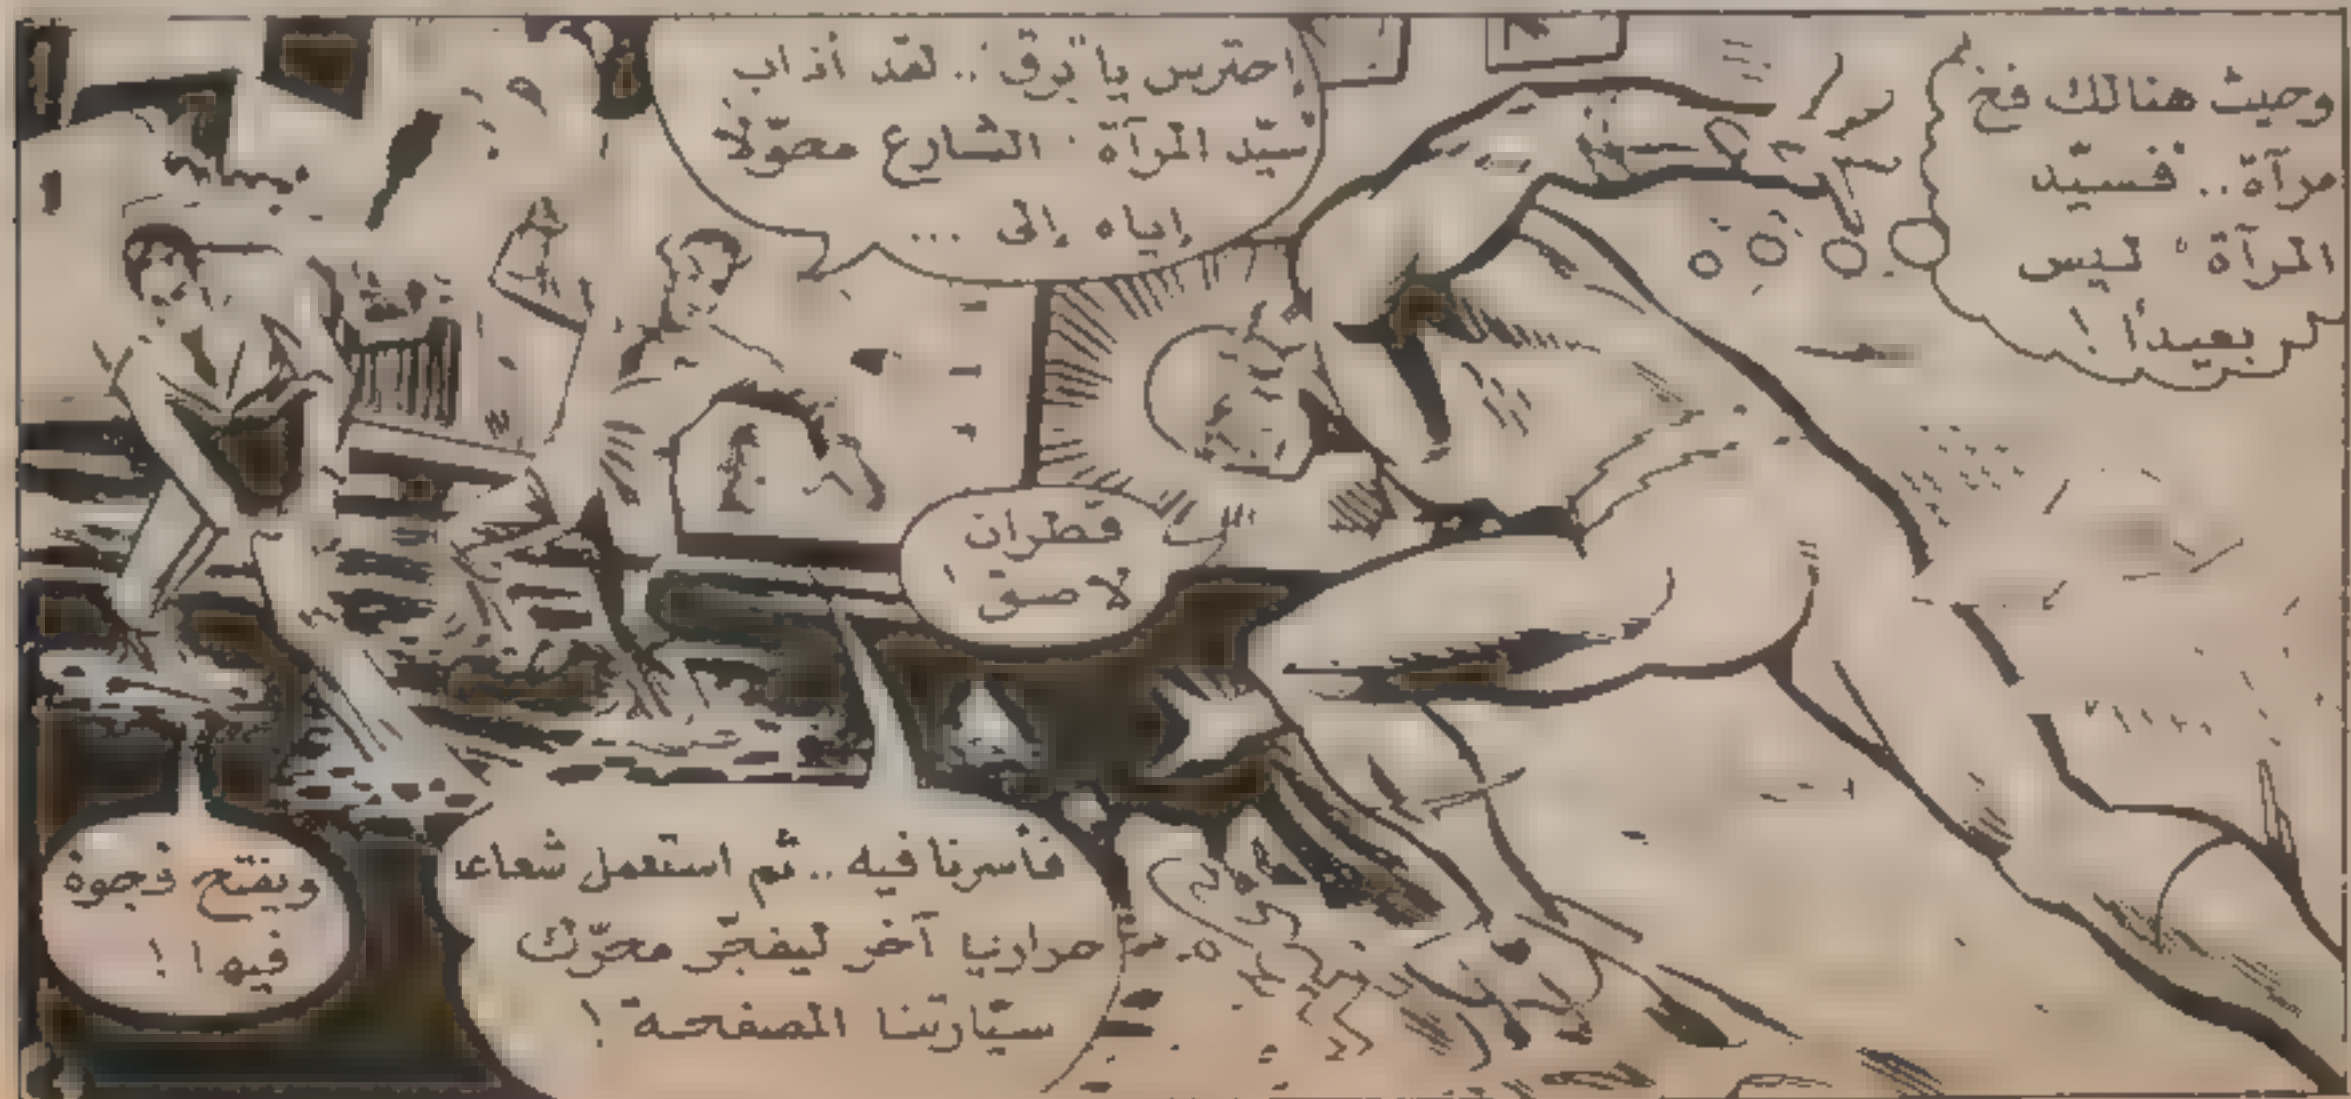 وحيث هنالك فخ
مرآة.. فسيّد
المرآة" ليس
بعيداً !
إحترس يا"برق".. لقد أذاب
"سيّد المرآة" الشارع محوّلاً
إياه إلى ...
قطران
لاصق !
فأسرنا فيه .. ثم استعمل شعاعا
حراريا آخر ليفجّر محرّك
سيّارتنا المصفحة !
ويفتح فجوة
فيها !